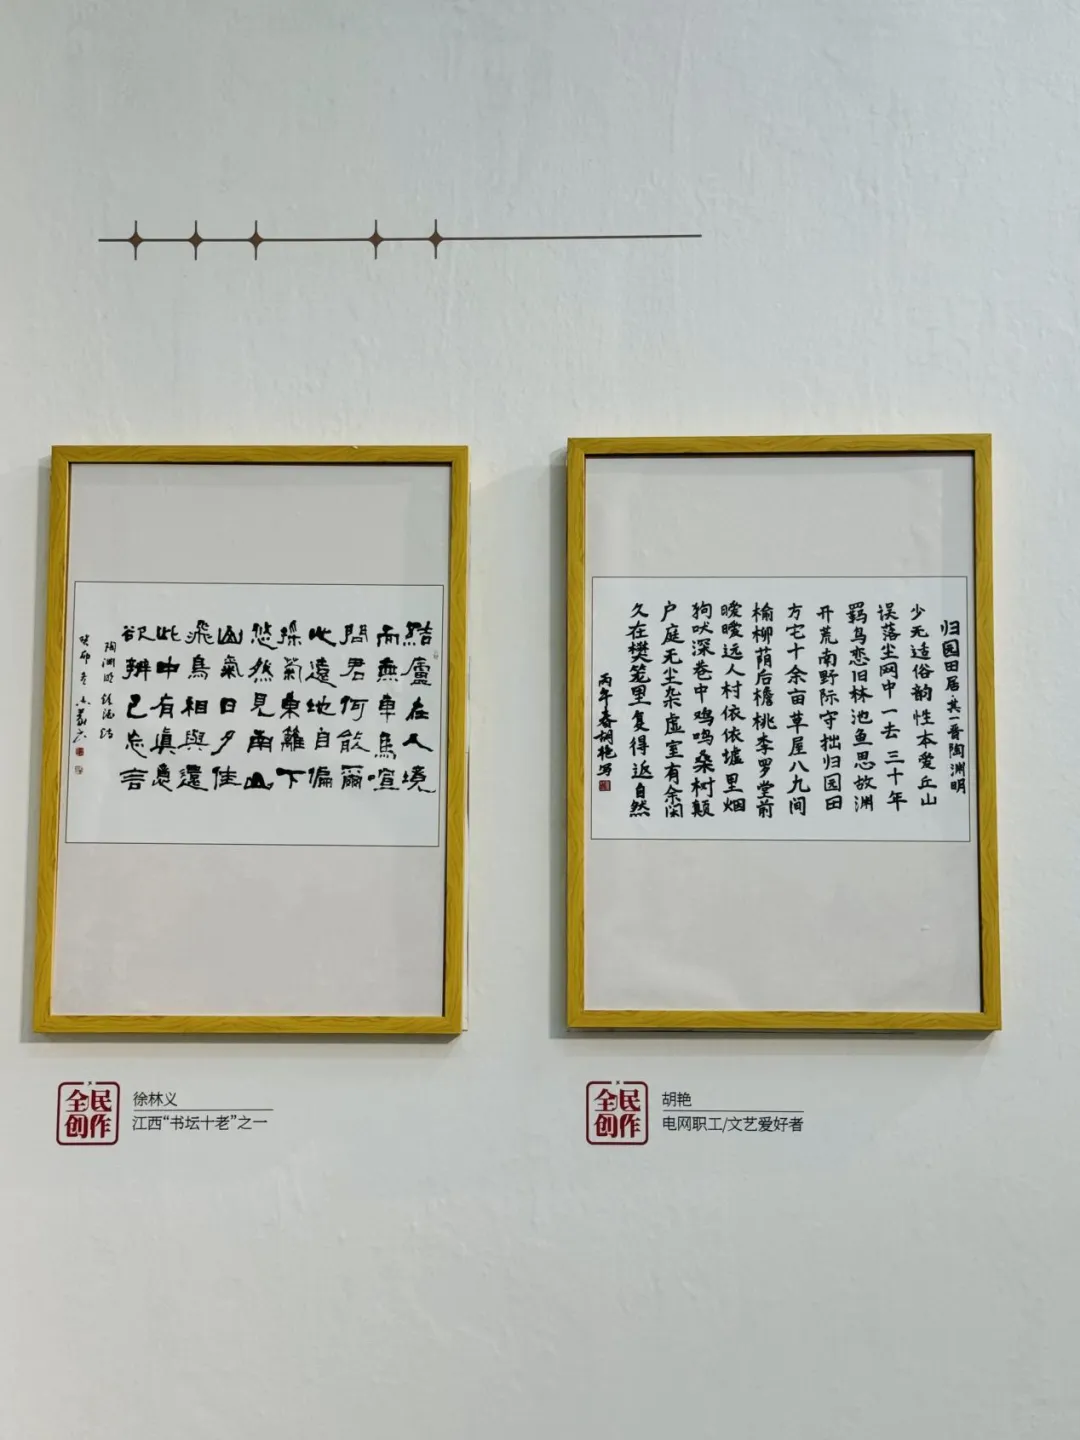 結廬在人境
而無車馬喧
問君何能爾
心遠地自偏
採菊東籬下
悠然見南山
山氣日夕佳
飛鳥相與還
此中有真意
欲辨已忘言
陶淵明飲酒詩
癸卯
归园田居·其一晋陶渊明
少无适俗韵性本爱丘山
误落尘网中一去三十年
羁鸟恋旧林池鱼思故渊
开荒南野际守拙归园田
方宅十余亩草屋八九间
榆柳荫后檐桃李罗堂前
暧暧远人村依依墟里烟
狗吠深巷中鸡鸣桑树颠
户庭无尘杂虚室有余闲
久在樊笼里复得返自然
丙午春胡艳写
全民
创作
徐林义
江西“书坛十老”之一
全民
创作
胡艳
电网职工/文艺爱好者